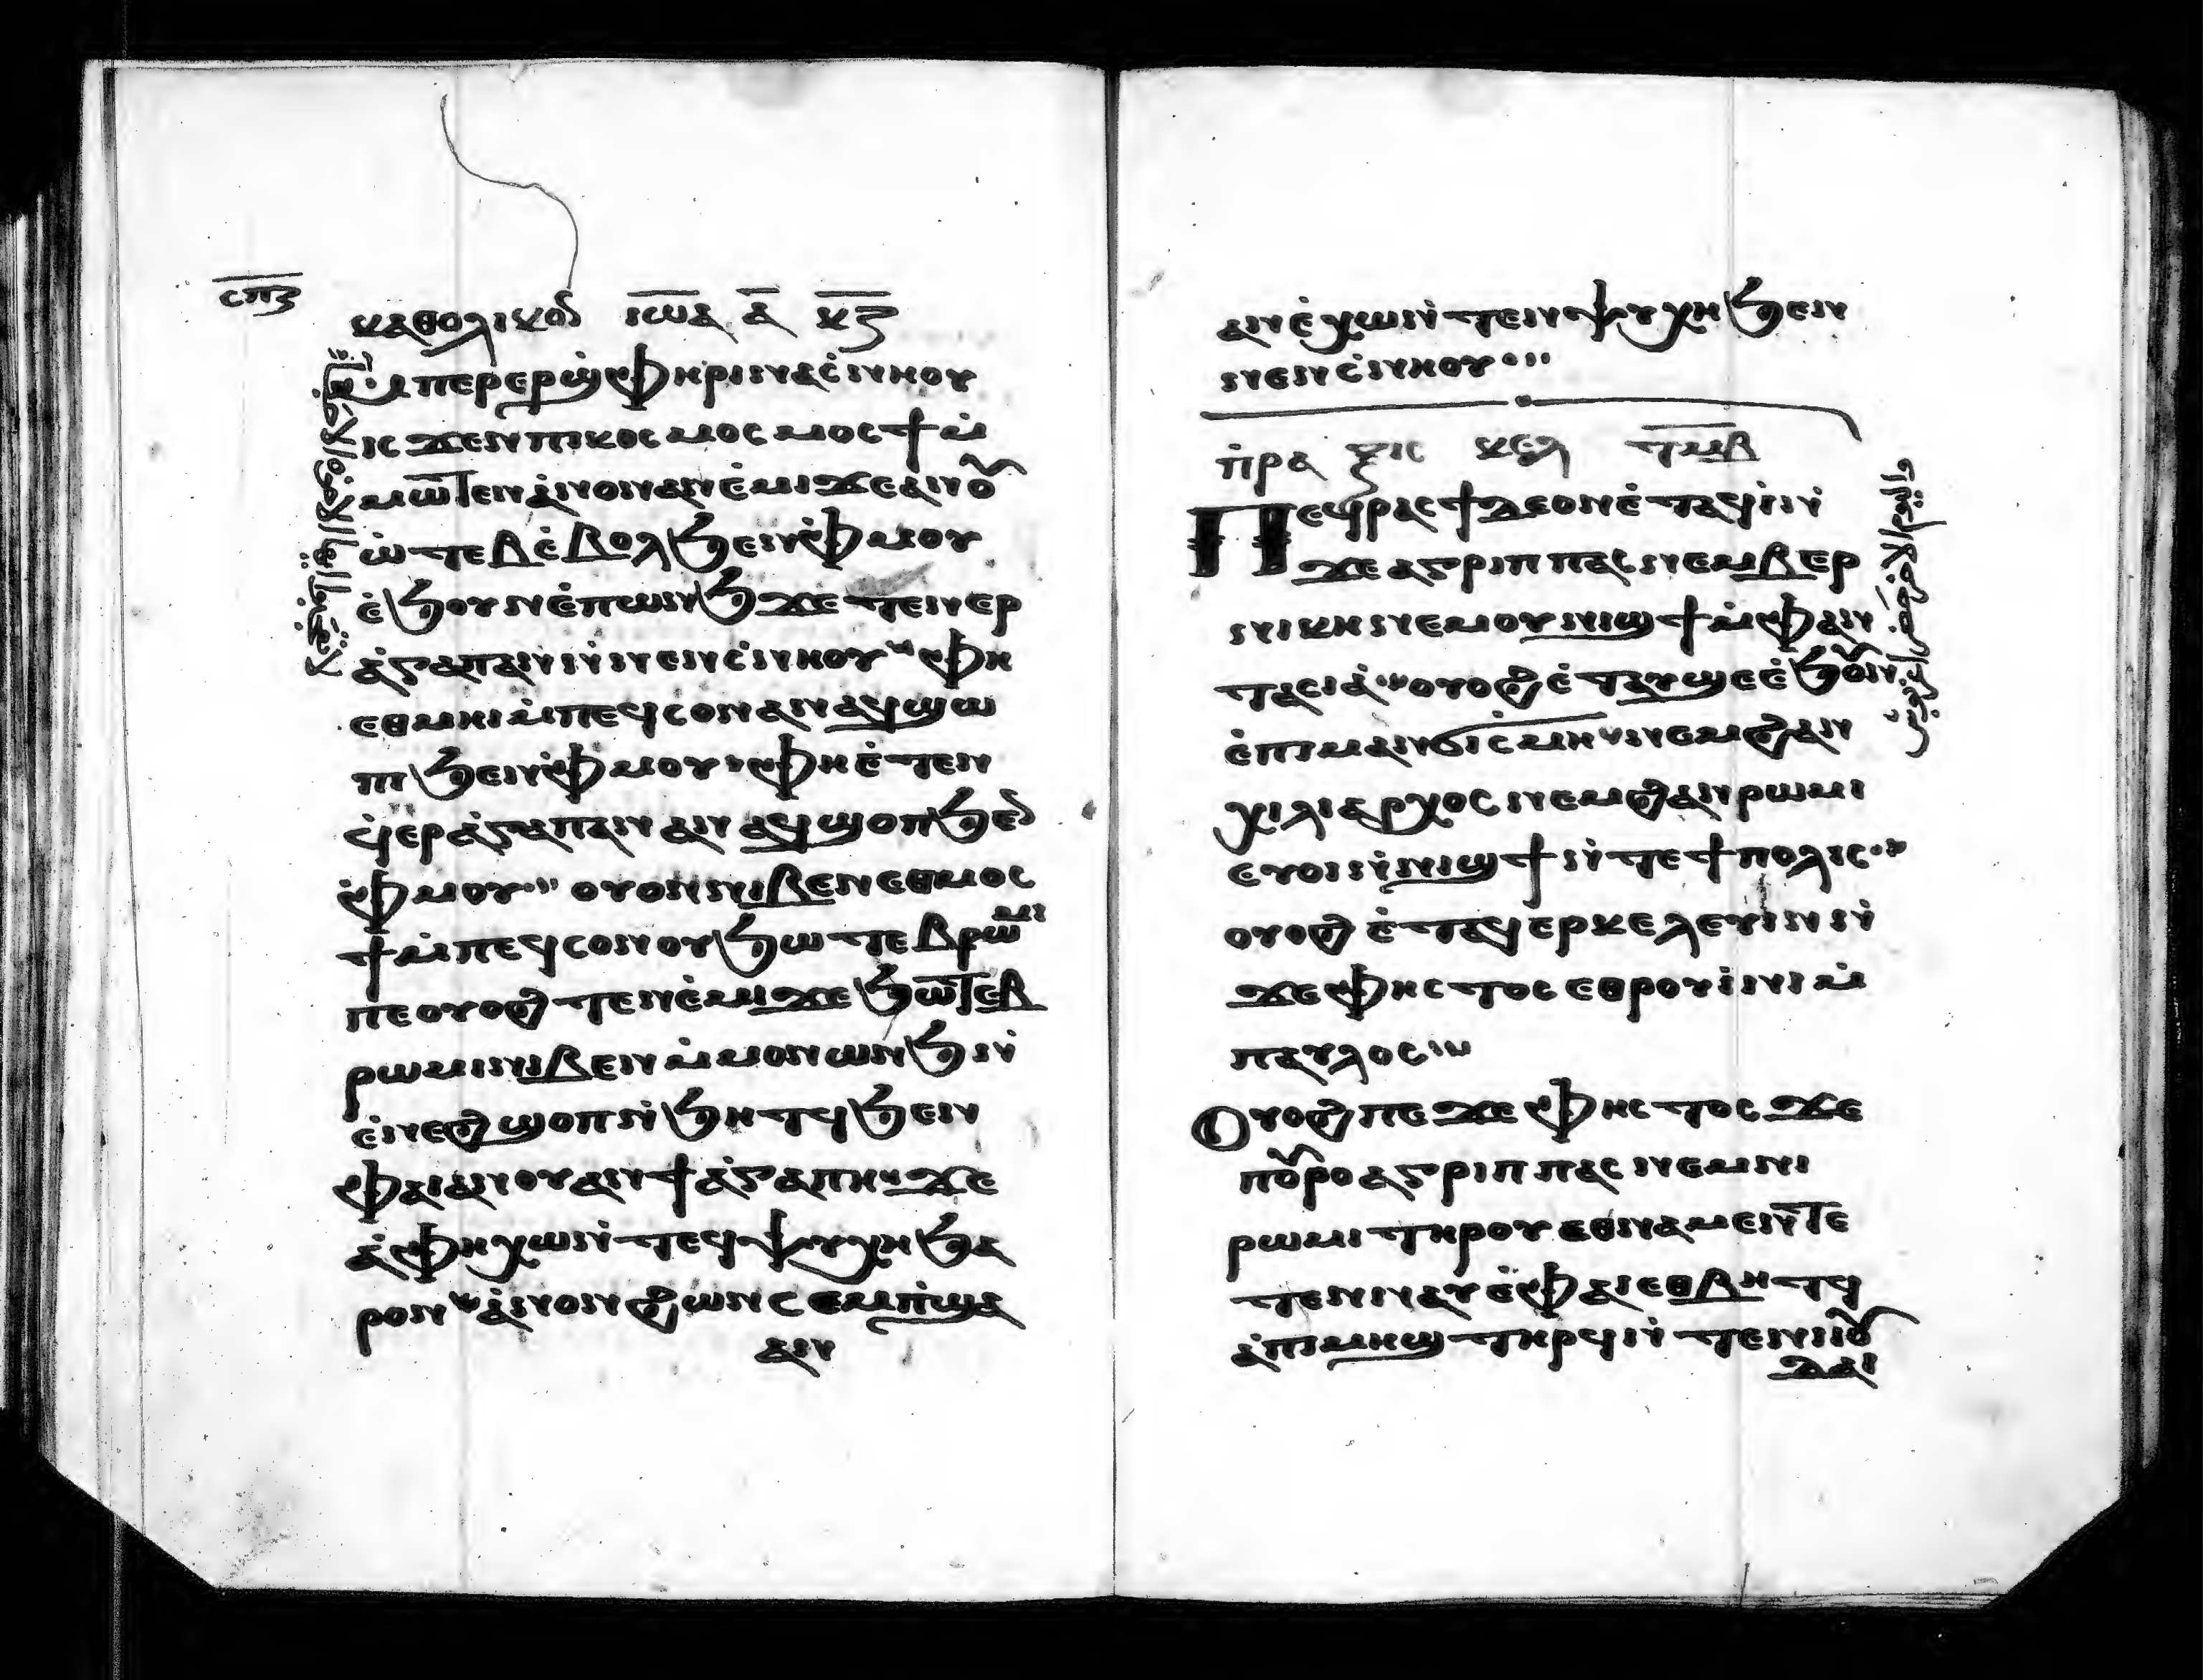 ⲥⲡⲍ
ⲕⲁⲑⲟⲗⲓⲕⲟⲛ ⲓⲱⲁ ⲁ̅ ⲕⲍ
ⲙⲡⲉⲣⲉⲣϣⲫⲏⲣⲓ ⲛⲁⲥ̇ⲛⲏⲟⲩ
ⲓⲥϫⲉⲛ ⲡⲓⲕⲟⲥⲙⲟⲥ ⲙⲟⲥϯ ⲙ̇
ⲙⲱⲧⲉⲛ ⲁ̇ⲛⲟⲛ ⲁⲛⲉ̇ⲙⲓ ϫⲉ ⲁⲛⲟⲩ
ⲱ̇ⲧⲉⲃ ⲉ̇ⲃⲟⲗ ϧⲉⲛ ⲫ̇ⲙⲟⲩ
ⲉ̇ϧⲟⲩⲛ ⲉ̇ⲡⲱⲛϧ ϫⲉ ⲧⲉⲛⲉⲣ
ⲁ̇ⲅⲁⲡⲁⲛ ⲛ̇ⲛⲉⲛⲥ̇ⲛⲏⲟⲩ ⲫⲏ
ⲉⲑⲙⲏⲓ ⲙ̇ⲡⲉϥⲥⲟⲛ ⲁⲛ ⲁϥϣⲱ
ⲡⲓ ϧⲉⲛ ⲫ̇ⲙⲟⲩ ⲫⲏ ⲉ̇ⲧⲉⲛ
ϥ̇ⲉⲣⲁ̇ⲅⲁⲡⲁⲛ ⲁⲛ ⲁϥϣⲟⲡ ϧⲉⲛ
ⲫ̇ⲙⲟⲩ ⲟⲩⲟⲛ ⲛⲓⲃⲉⲛ ⲉⲑⲙⲟⲥ
ϯ ⲙ̇ⲡⲉϥⲥⲟⲛ ⲟⲩϧⲱⲧⲉⲃ ⲣⲱⲙⲓ
ⲡⲉ ⲟⲩⲟϩ ⲧⲉⲛⲉ̇ⲙⲓ ϫⲉ ϧⲱⲧⲉⲃ
ⲣⲱⲙⲓ ⲛⲓⲃⲉⲛ ⲙ̇ⲙⲟⲛ ⲱⲛϧ ⲛ̇
ⲉ̇ⲛⲉϩ ϣⲟⲡ ⲛ̇ϧⲏⲧϥ ϧⲉⲛ
ⲫⲁⲓ ⲁⲛⲟⲩⲁⲛ ϯⲁ̇ⲅⲁⲡⲏ ϫⲉ
ⲁ̇ ⲫⲏ ⲭⲱ ⲛ̇ⲧⲉϥⲯⲩⲭⲏ ϧⲁ
ⲣⲟⲛ ⲁ̇ⲛⲟⲛ ϩⲱⲛ ⲥⲉⲙⲡ̇ϣⲁ
ⲁⲛ
ⲁⲛ ⲉ̇ⲭⲱ ⲛ̇ⲧⲉⲛⲯⲩⲭⲏ ϧⲉⲛ
ⲛⲉⲛⲥ̇ⲛⲏⲟⲩ
ⲡ̇ⲣⲁⲝⲓⲥ ⲕⲉⲫ ⲧⲙⲃ
ⲡⲉϥⲣⲁⲥϯ ⲇⲉ ⲟⲛ ⲉ̇ⲧⲁϥⲓ̇ ⲛ̇
ϫⲉ ⲁⲅⲣⲓⲡⲡⲁⲥ ⲛⲉⲙ ⲃⲉⲣ
ⲛⲓⲕⲏ ⲛⲉⲙ ⲟⲩⲛⲓϣϯ ⲙ̇ⲫⲁⲛ
ⲧⲁⲥⲓⲁ̇ ⲟⲩⲟϩ ⲉ̇ⲧⲁⲩϣⲉ ⲉ̇ϧⲟⲩⲛ
ⲉ̇ⲡⲓⲙⲁ ⲛ̇ϭⲓⲥⲙⲏ ⲛⲉⲙ ϩⲁⲛ
ⲭⲓⲗⲓⲁⲣⲭⲟⲥ ⲛⲉⲙ ϩⲁⲛⲣⲱⲙⲓ
ⲉⲩⲟⲓ ⲛ̇ⲛⲓϣϯ ⲛ̇ⲧⲉ ϯⲡⲟⲗⲓⲥ
ⲟⲩⲟϩ ⲉ̇ⲧⲁϥⲉⲣⲕⲉⲗⲉⲩⲓⲛ ⲛ̇
ϫⲉ ⲫⲏⲥⲧⲟⲥ ⲉⲑⲣⲟⲩⲓ̇ⲛⲓ ⲙ̇
ⲡⲁⲩⲗⲟⲥ
ⲟⲩⲟϩ ⲡⲉϫⲉ ⲫⲏⲥⲧⲟⲥ ϫⲉ
ⲡⲟⲩⲣⲟ ⲁⲅⲣⲓⲡⲡⲁⲥ ⲛⲉⲙ ⲛⲓ
ⲣⲱⲙⲓ ⲧⲏⲣⲟⲩ ⲉⲑⲛⲁⲙⲉⲛ ⲧⲉ
ⲧⲉⲛⲛⲁⲩ ⲉ̇ⲫⲁⲓ ⲉⲑⲃⲏⲧϥ
ⲁ̇ ⲡⲓⲙⲏϣ ⲧⲏⲣϥ ⲛ̇ⲧⲉ ⲛⲓⲓⲟⲩ
ⲇⲁⲓ